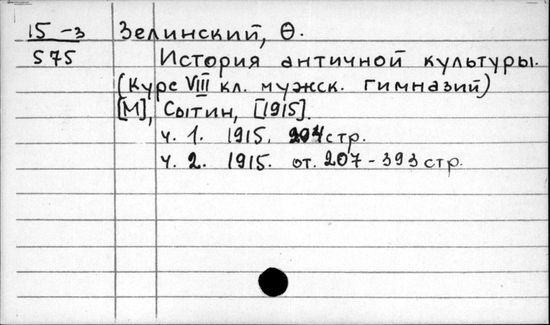 15-3 Зелинский, Ѳ.
575 История античной культуры.
(Курс VIII кл. мужск. гимназий)
[М], Сытин, [1915].
ч. 1. 1915. 204 стр.
ч. 2. 1915. от. 207-393 стр.